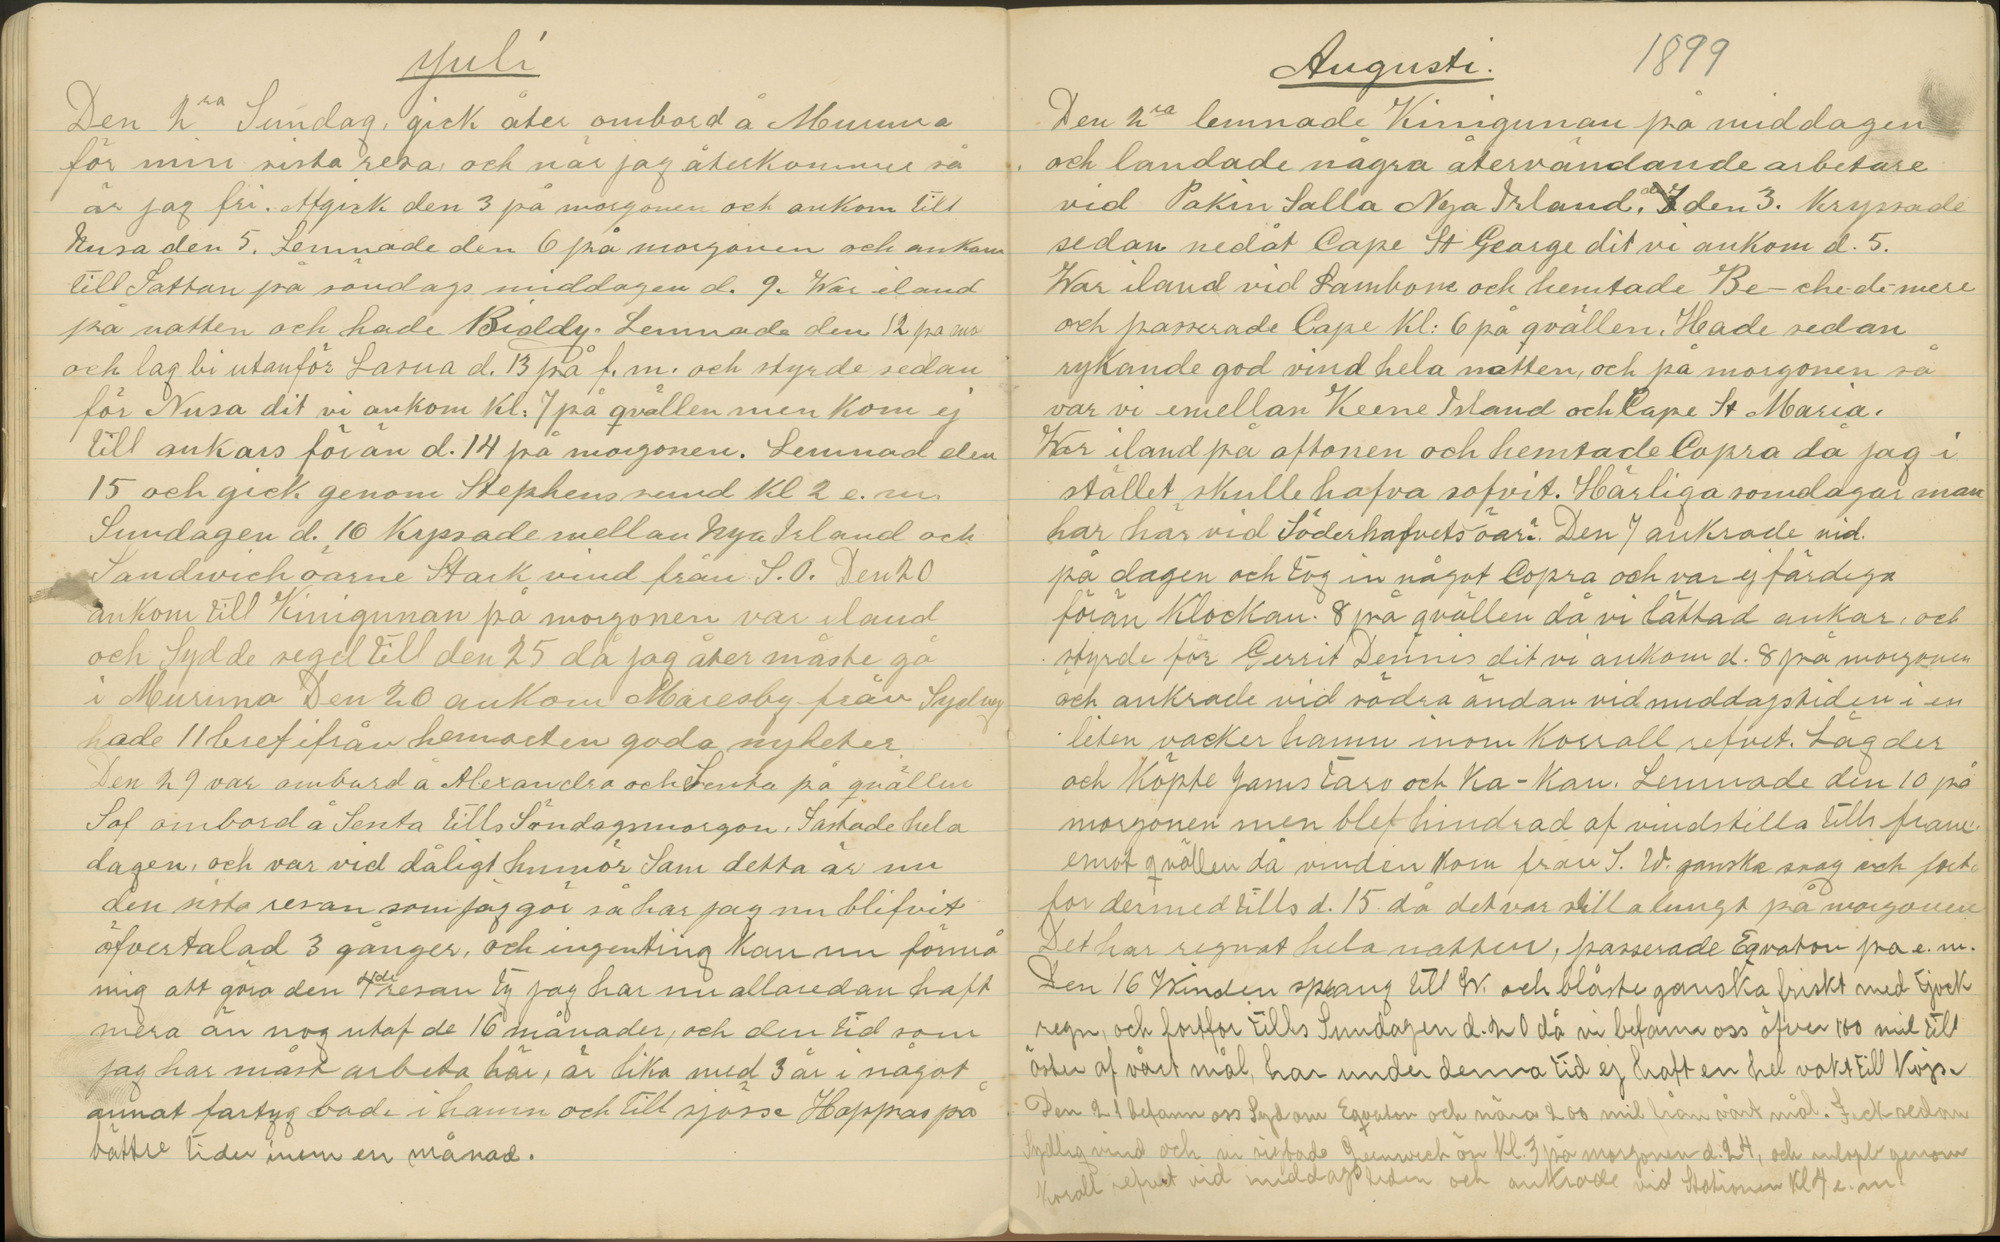 Yuli
Den 2ra Sundag, gick åter ombord å Muruna
för min sista resa, och när jag återkommer så
är jag fri. Afgick den 3 på morgonen och ankom till
Nusa den 5. Lemnade den 6 på morgonen och ankom
till Sattan på söndags middagen d. 9. War iland
på natten och hade Biddy. Lemnade den 12 på
och lag bi utanför Lasua d. 13 på f. m. och styrde sedan
för Nusa dit vi ankom Kl: 7 på qvällen men kom ej
till ankars förän d. 14 på morgonen. Lemnad den
15 och gick genom Stephens sund Kl 2 e. m.
Sundagen d. 16 Krysade mellan Nya Irland och
Sandwich öarne Stark vind från S.O. Den 20
ankom till Kinigunan på morgonen var iland
och Sydde segel till den 25 då jag åter måste gå
i Muruna Den 20 ankom Moresby från Sydney
hade 11 bref ifrån hemorten goda nyheter
Den 29 var ombord å Alexandra och Senta på qvällen
Sof ombord å Senta tills Söndagsmorgon. Lastade hela
dagen, och var vid dåligt humör Sam detta är nu
den sista resan som jag gör så har jag nu blifvit
öfvertalad 3 gånger, och ingenting kan nu förmå
mig att göra den 4de resan ty jag har nu allaredan haft
mera än nog utaf de 16 månader, och den tid som
jag har måst arbeta här, är lika med 3 år i något
annat fartyg bade i hamn och till sjöss Hoppas på
bättre tider inom en månad.
Augusti. 1899
Den 2ra lemnade Kinigunan på middagen
och landade några återvändande arbetare
vid Pakin Salla Nya Irland, den 3. Kryssade
sedan nedåt Cape St George dit vi ankom d. 5.
War iland vid Lambom och hemtade Be-che-de-mere
och passerade Cape Kl: 6 på qvällen. Hade sedan
rykande god vind hela natten, och på morgonen så
var vi emellan Keene Island och Cape St Maria.
War iland på aftonen och hemtade Copra då jag i
stället skulle hafva sofvit. Härliga somdagar man
har här vid Söderhafvets öar. Den 7 ankrade vid
på dagen och tog in något Copra och var ej färdiga
förän Klockan. 8 på qvällen då vi lättad ankar, och
styrde för Gerrit Dennis dit vi ankom d. 8 på morgonen
och ankrade vid södra ändan vid middagstiden i en
liten vacker hamn inom Korrall refvet. Låg der
och Köpte Yams taro och Ka-Kau. Lemnade den 10 på
morgonen men blef hindrad af vindstilla tills fram
emot qvällen då vinden kom från S. W. ganska svag och fort
for dermed tills d. 15 då det var stilla lungt på morgonen
Det har regnat hela natten, passerade Eqvaton pa e. m.
Den 16 Winden sprang till W. och blåste ganska friskt med tjock
regn, och fortfor tills Sundagen d. 20 då vi befann oss öfver 100 mil till
öster af vårt mål, har under denna tid ej haft en hel vakt till Kojs
Den 21 befann oss Syd om Eqvaton och nära 200 mil från vårt mål. Fick sedan
Sydlig vind och vi Greenwich ön Kl. 3 på morgonen d. 24, och inlopt genom
Korall refvet vid middagstiden och ankrade vid Stationen Kl 4 e. m